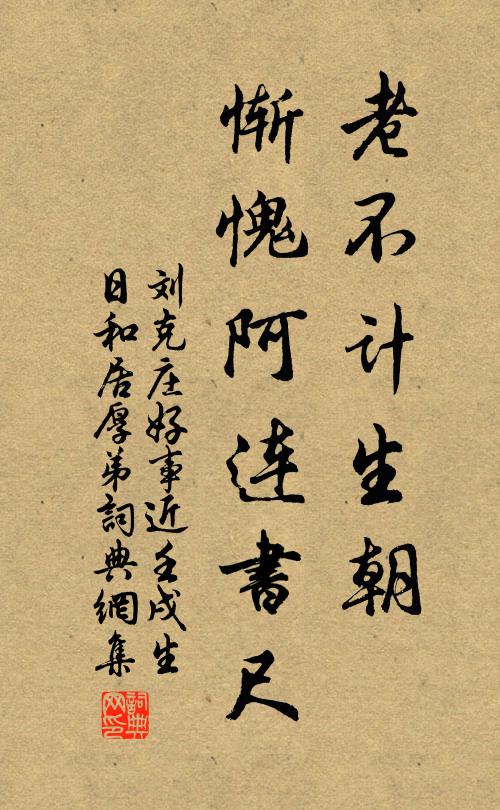 老不计生朝
惭愧阿连書尺
刘克庄好事近壬戌生
日和居厚弟詞典網集
詞典网印